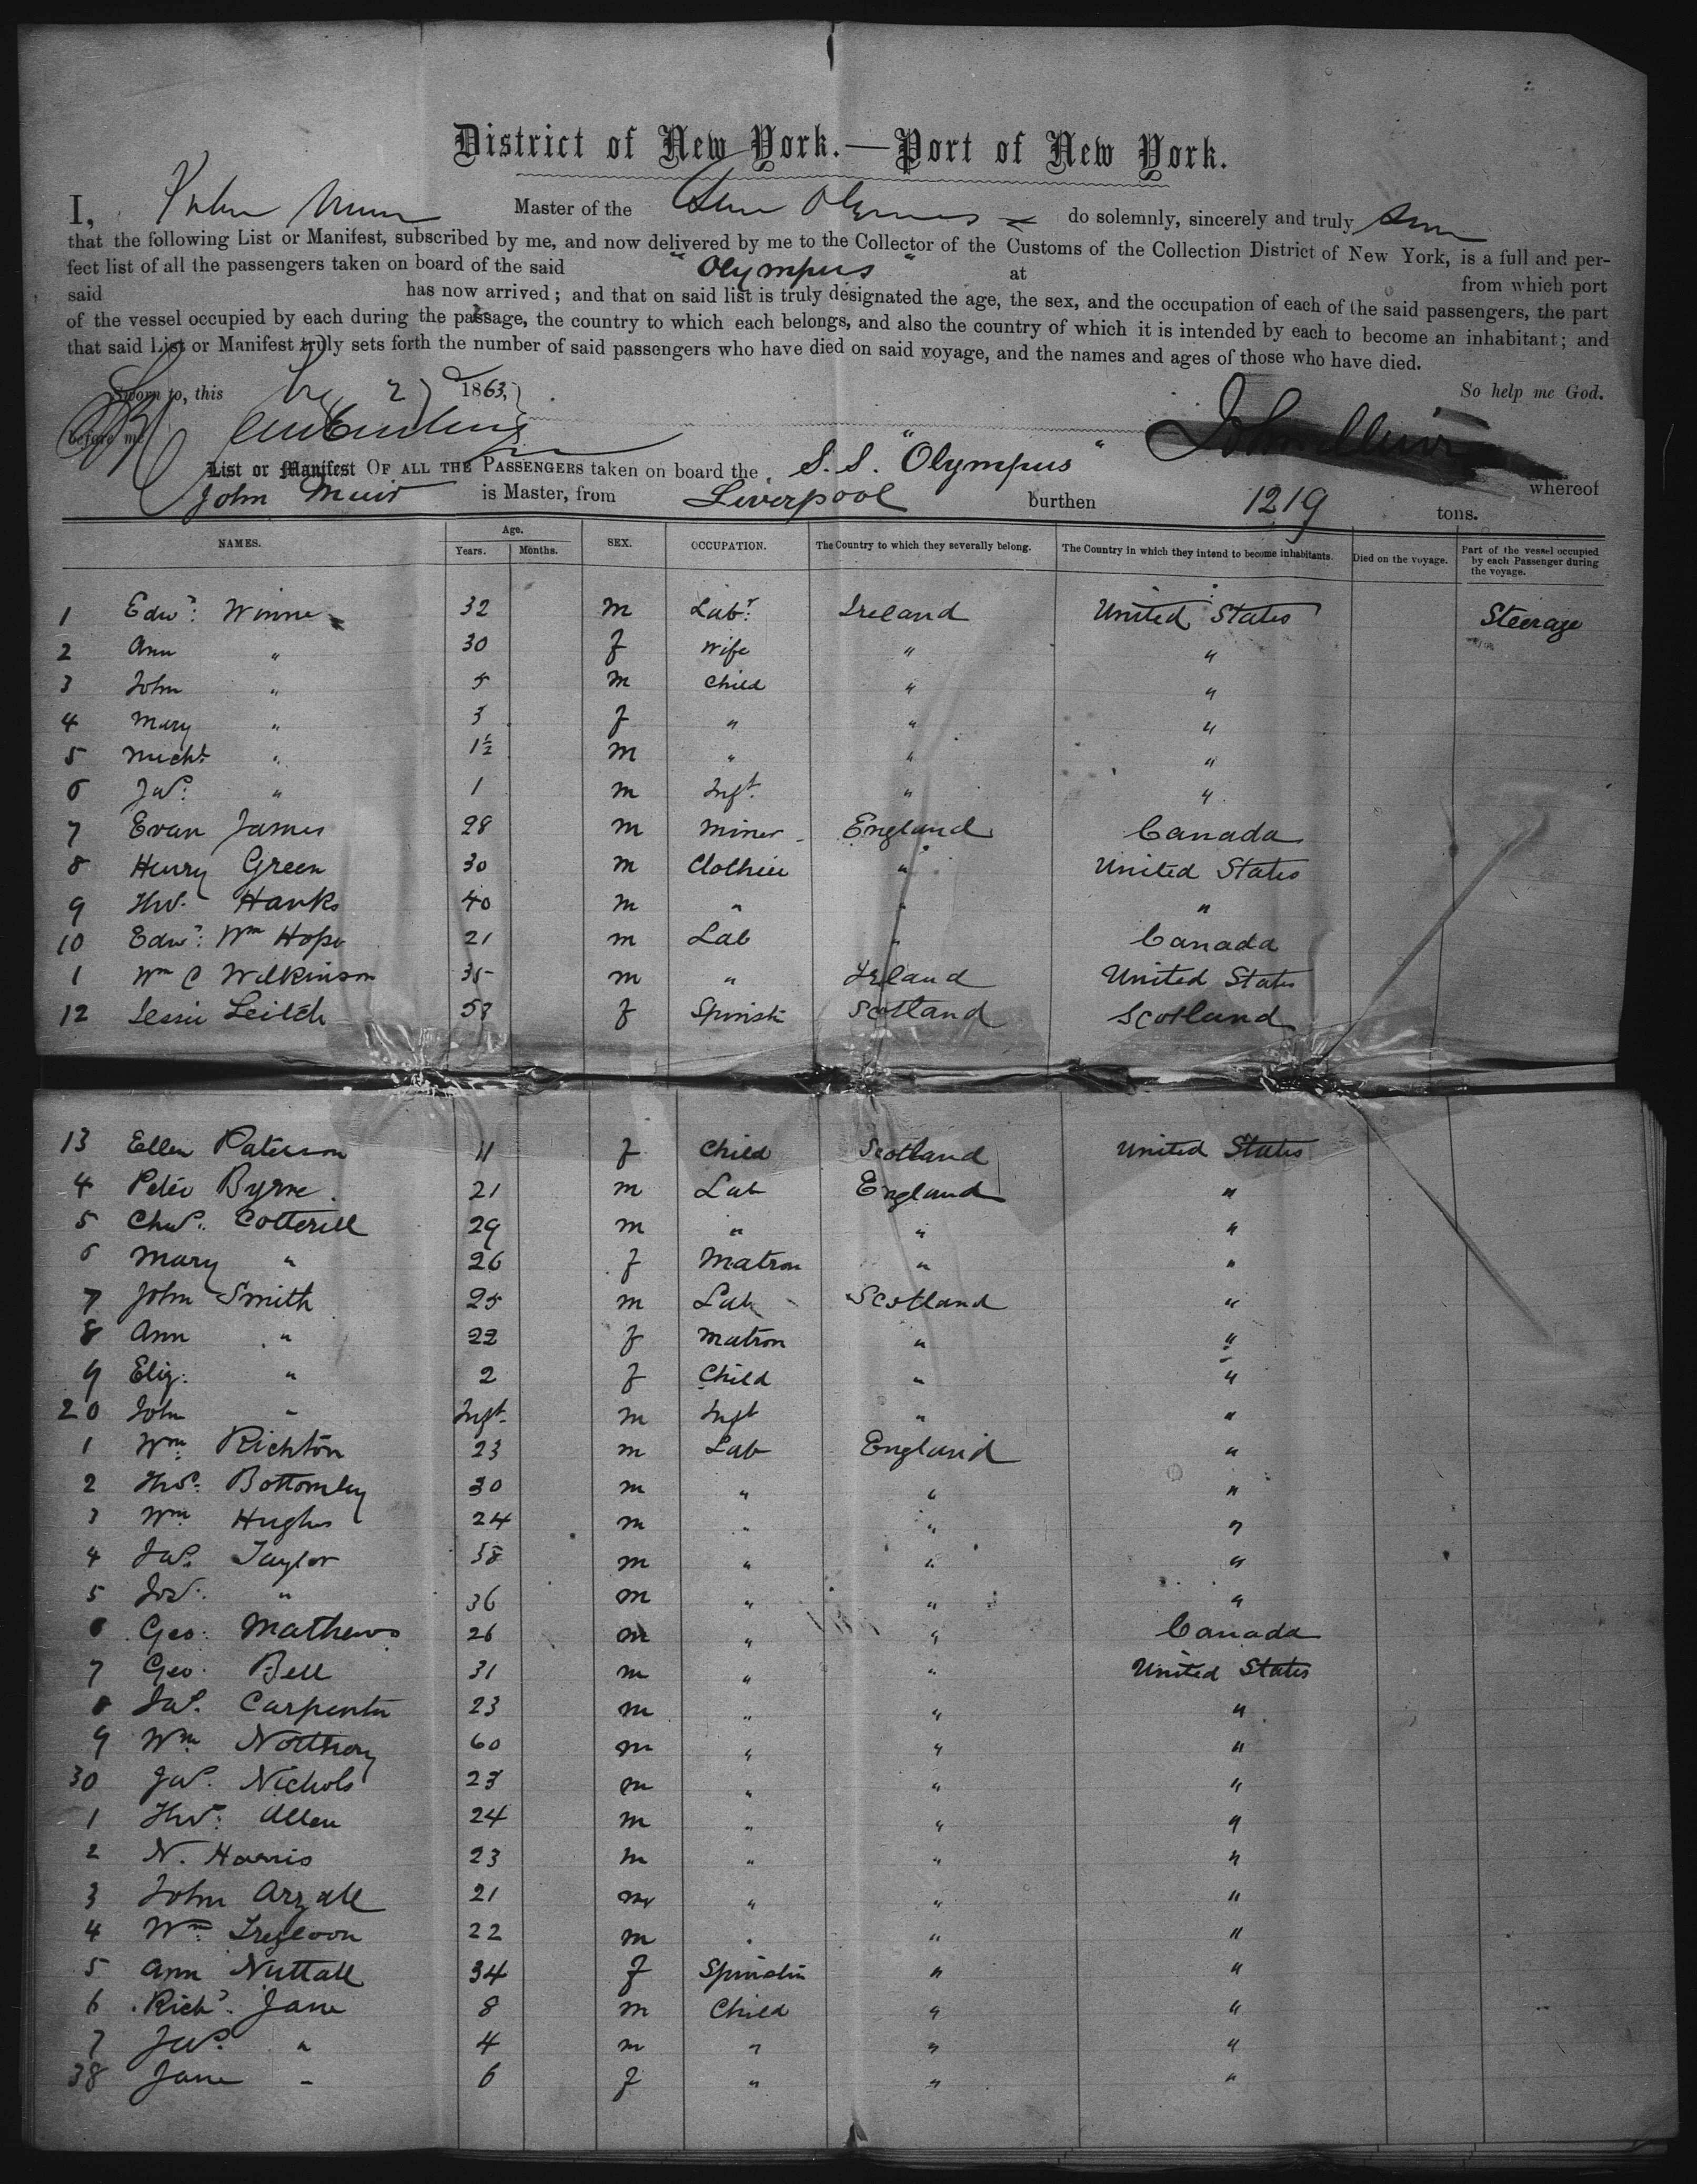 District of New York.—Port of New York.
I, John Muir Master of the Olympus do solemnly, sincerely and truly
that the following List or Manifest, subscribed by me, and now delivered by me to the Collector of the Customs of the Collection District of New York, is a full and per-
fect list of all the passengers taken on board of the said "Olympus" at from which port
said has now arrived; and that on said list is truly designated the age, the sex, and the occupation of each of the said passengers, the part
of the vessel occupied by each during the passage, the country to which each belongs, and also the country of which it is intended by each to become an inhabitant; and
that said List or Manifest truly sets forth the number of said passengers who have died on said voyage, and the names and ages of those who have died.
Sworn to, this 2 1863, So help me God.
before me John Muir
List or Manifest OF ALL THE PASSENGERS taken on board the S.S. "Olympus" whereof
John Muir is Master, from Liverpool burthen 1219 tons.
NAMES. Age. Years. Months. SEX. OCCUPATION. The Country to which they severally belong. The Country in which they intend to become inhabitants. Died on the voyage. Part of the vessel occupied by each Passenger during the voyage.
1 Edwd: Winne 32 m Labr: Ireland United States Steerage
2 Ann " 30 f Wife " "
3 John " 5 m Child " "
4 Mary " 3 f " " "
5 Michl " 1½ m " " "
6 Jas: " 1 m Inft. " "
7 Evan James 28 m Miner England Canada
8 Henry Green 30 m Clothier " United States
9 Thos. Hanks 40 m " " "
10 Edwd: Wm Hope 21 m Lab " Canada
1 Wm C Wilkinson 35 m " Ireland United States
12 Jessie Leitch 53 f Spinstr Scotland Scotland
13 Ellen Paterson 11 f Child Scotland United States
4 Peter Byrne 21 m Lab England "
5 Chas. Cotterill 29 m " " "
6 Mary " 26 f Matron " "
7 John Smith 25 m Lab Scotland "
8 Ann " 22 f Matron " "
9 Eliz: " 2 f Child " "
20 John " Inft. m Inft " "
1 Wm: Richton 23 m Lab England "
2 Thos: Bottomley 30 m " " "
3 Wm Hughes 24 m " " "
4 Jas. Taylor 38 m " " "
5 Jos: " 36 m " " "
6 Geo: Mathews 26 m " " Canada
7 Geo: Bell 31 m " " United States
8 Jas. Carpenter 23 m " " "
9 Wm Northroy 60 m " " "
30 Jas. Nichols 23 m " " "
1 Thos: Allen 24 m " " "
2 N. Harris 23 m " " "
3 John Arzall 21 m " " "
4 Wm: Tregloon 22 m " " "
5 Ann Nuttall 34 f " "
6 Richd. Jane 8 m Child " "
7 Jas. " 4 m " " "
38 Jane " 6 f " " "